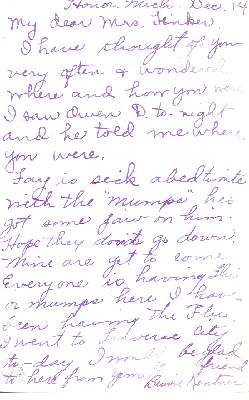 Honor. Mich. Dec. 14
My dear Mrs. Tinker.
I have thought of you
very often & wondered
where and how you were
I saw Owen D. to-night
and he told me where
you were.
Fay is sick abed to-nite
with the "mumps", has
got some jaw on him.
Hope they don't go down.
Mine are yet to come
Everyone is having Flu
or mumps here, I have
been having the Flu.
I went to Traverse City
to-day I would be glad
to hear from you. friend